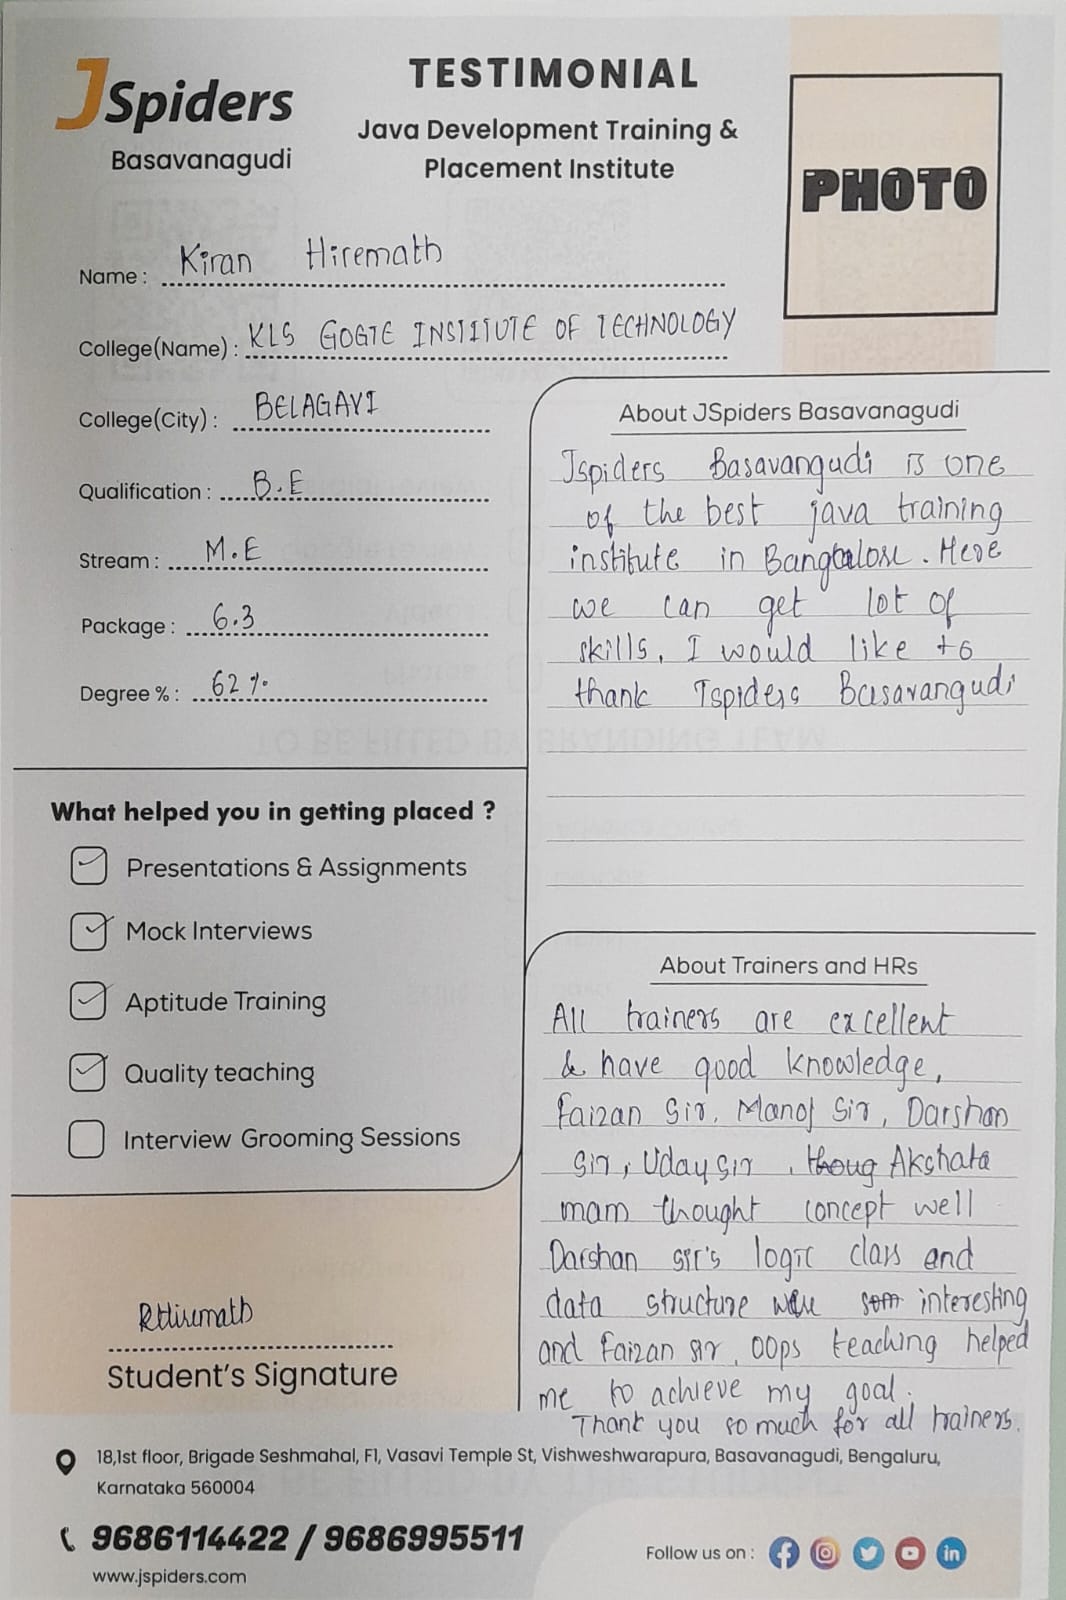 JSpiders
Basavanagudi
TESTIMONIAL
Java Development Training &
Placement Institute
PHOTO
Name : Kiran Hiremath
College(Name) : KLS GOGTE INSTITUTE OF TECHNOLOGY
College(City) : BELAGAVI
Qualification : B.E
Stream : M.E
Package : 6.3
Degree % : 62 %
About JSpiders Basavanagudi
Jspiders Basavangudi is one
of the best java training
institute in Bangalore. Here
we can get lot of
skills, I would like to
thank Jspiders Basavangudi
What helped you in getting placed ?
Presentations & Assignments
Mock Interviews
Aptitude Training
Quality teaching
Interview Grooming Sessions
About Trainers and HRs
All trainers are excellent
& have good knowledge,
Faizan Sir, Manoj Sir, Darshan
Sir, Uday Sir, thoug Akshata
mam thought concept well
Darshan sir's logic class and
data structure were som interesting
and Faizan sir, OOps teaching helped
me to achieve my goal.
Thank you so much for all trainers.
KHiremath
Student's Signature
18,1st floor, Brigade Seshmahal, F1, Vasavi Temple St, Vishweshwarapura, Basavanagudi, Bengaluru,
Karnataka 560004
9686114422 / 9686995511
www.jspiders.com
Follow us on :